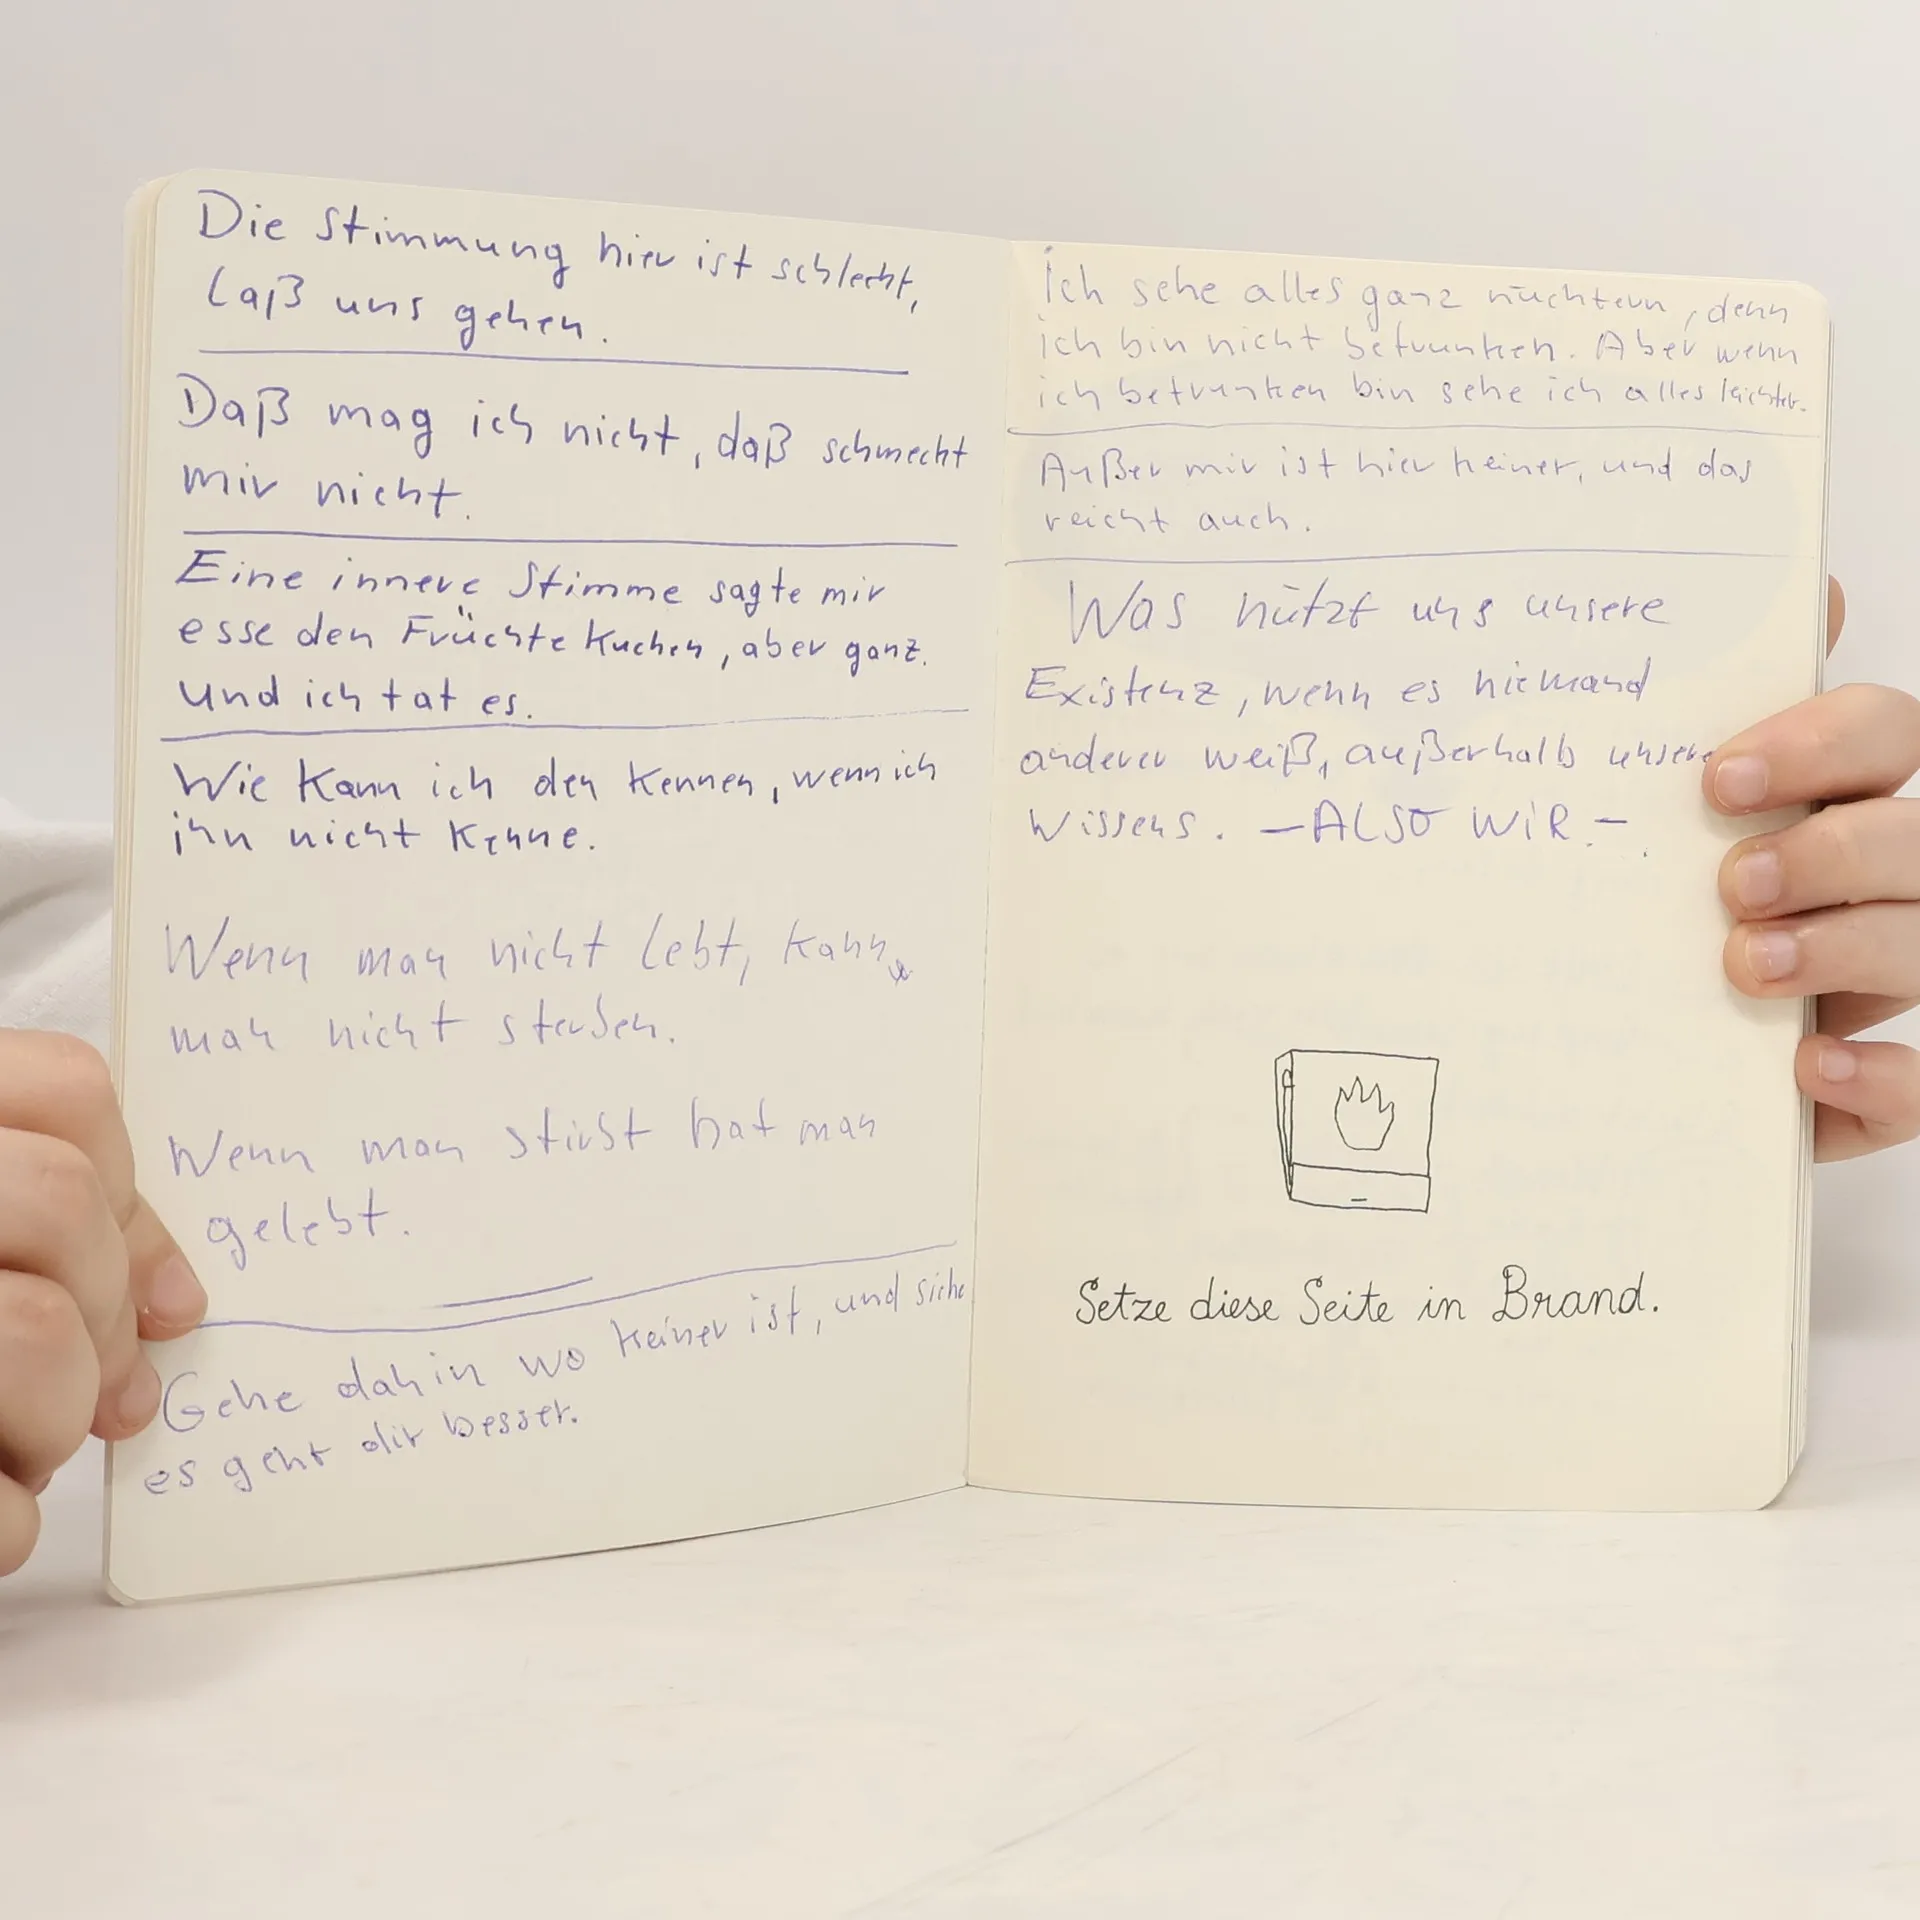 Die Stimmung hier ist schlecht,
Laß uns gehen.
Daß mag ich nicht, daß schmecht
mir nicht.
Eine innere Stimme sagte mir
esse den Früchte Kuchen, aber ganz.
Und ich tat es.
Wie Kann ich den Kennen, wenn ich
ihn nicht Kenne.
Wenn man nicht lebt, kann
man nicht sterben.
Wenn man stirbt hat man
gelebt.
Gehe dahin wo keiner ist, und siehe
es geht dir besser.
Ich sehe alles ganz nüchtern, denn
ich bin nicht betrunken. Aber wenn
ich betrunken bin sehe ich alles leichter.
Außer mir ist hier keiner, und das
reicht auch.
Was nützt uns unsere
Existenz, wenn es niemand
anderer weiß, außerhalb unsere
Wissens. – ALSO WIR –.
Setze diese Seite in Brand.